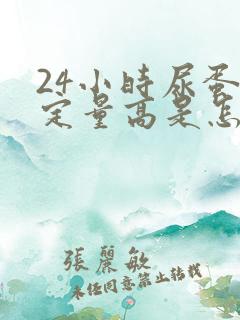 24小时尿蛋
定量高是怎
張麗敏
未经同意禁止转载